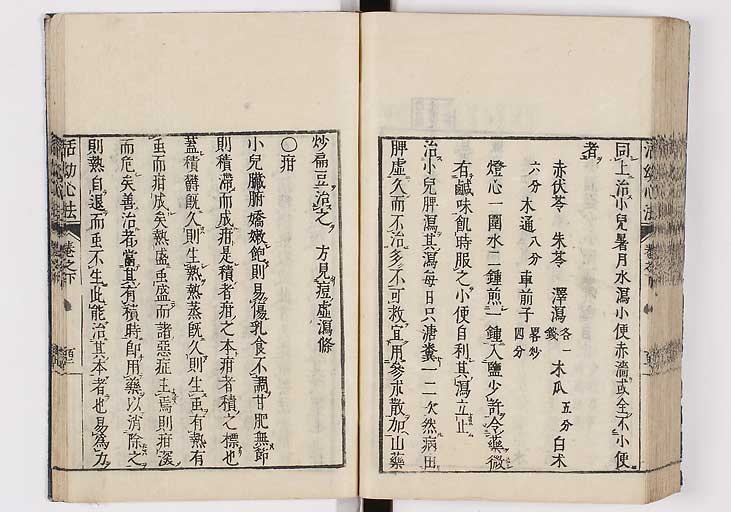 同上治小兒暑月水瀉小便赤濇或全不小便
者
赤茯苓 朱苓 澤瀉各一錢 木瓜五分 白朮
六分 木通八分 車前子畧炒四分
燈心一團水二鍾煎一鍾入鹽少許令藥微
有鹹味飢時服之小便自利其瀉立止
治小兒脾瀉其瀉每日只溏糞一二次然病因
脾虛久而不治多不可救宜用參朮散加山藥
炒扁豆治之 方見痘虛瀉條
〇疳
小兒臟腑嬌嫩飽則易傷乳食不調甘肥無節
則積滯而成疳是積者疳之本疳者積之標也
蓋積欝既久則生熱熱蒸既久則生䖝有熱有
䖝而疳成矣熱盛䖝盛而諸惡症生焉則疳深
而危矣善治者當其有積時即用藥以消除之
則熱自退而䖝不生此能治其本者也易爲力
活幼心法 卷之下